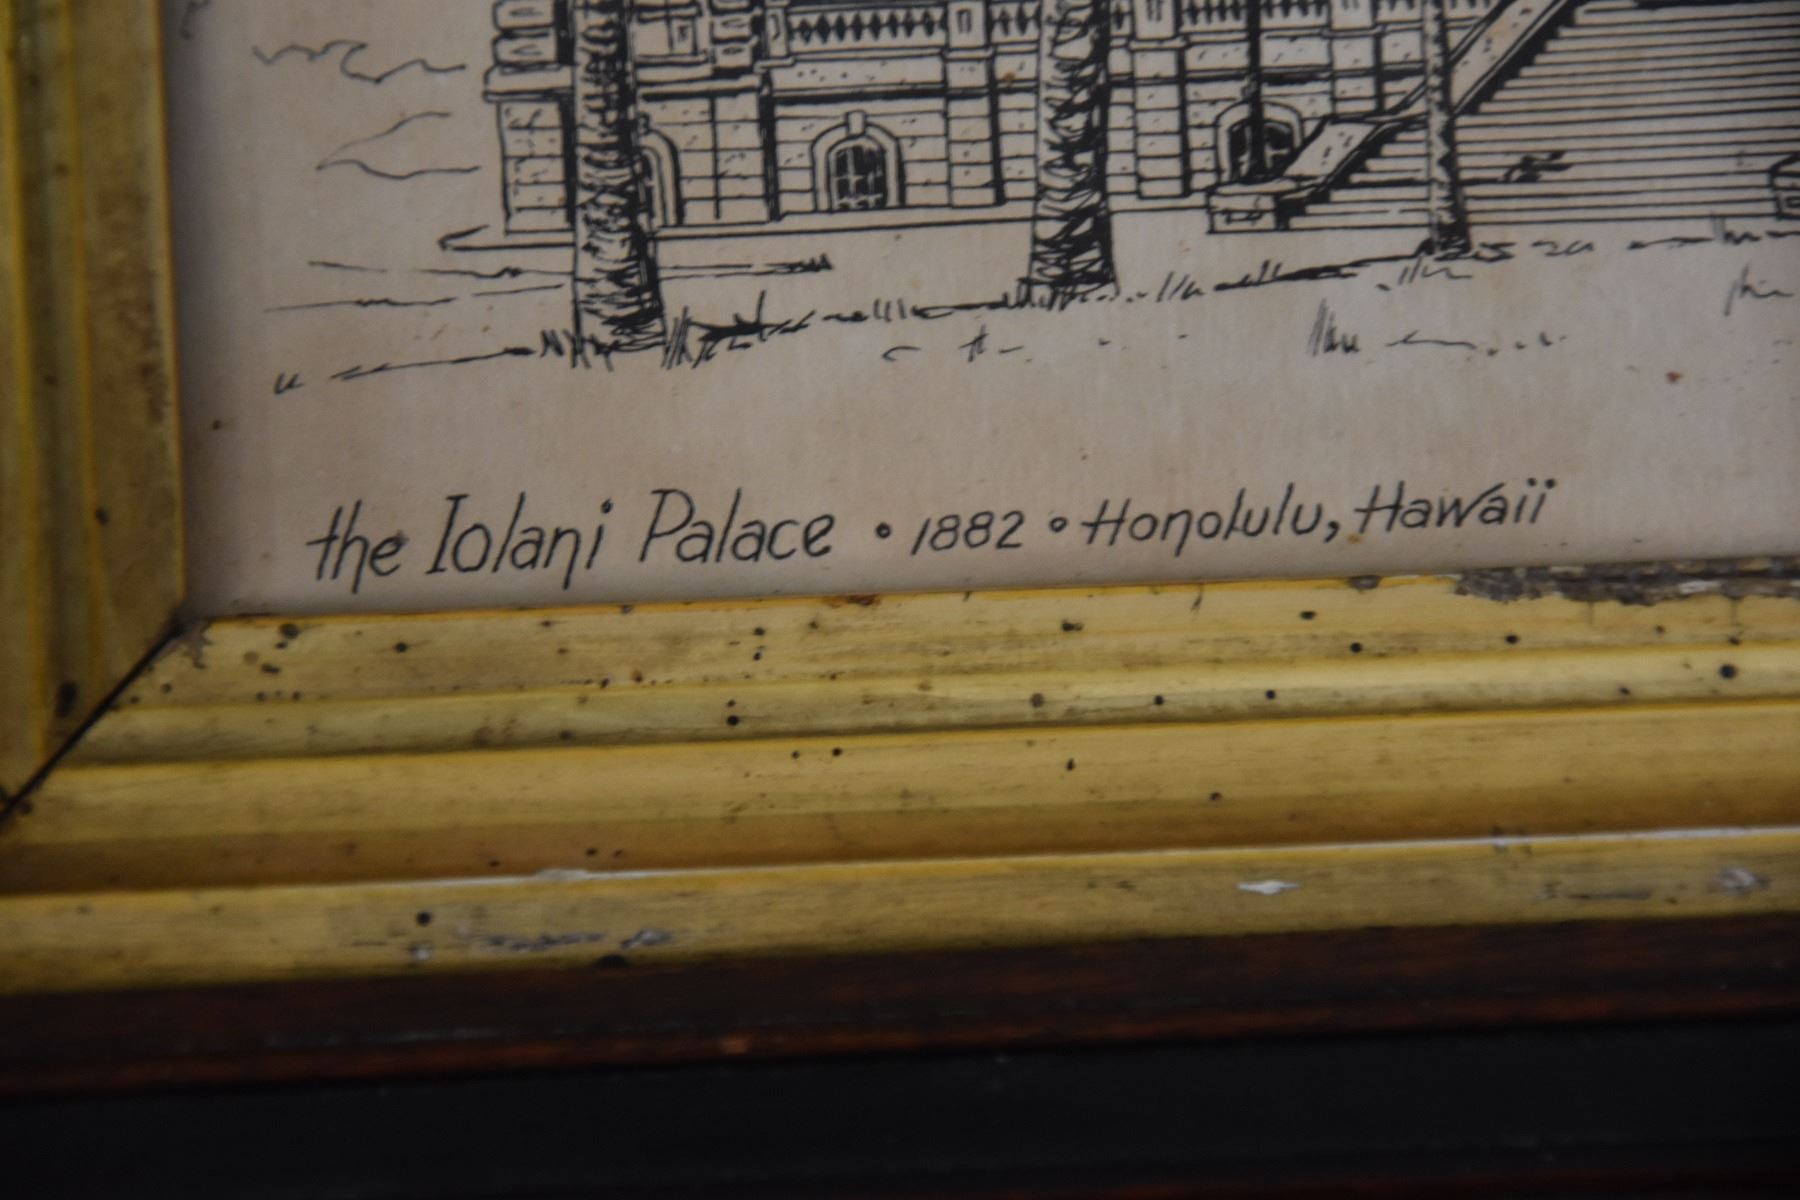 the Iolani Palace • 1882 • Honolulu, Hawaii